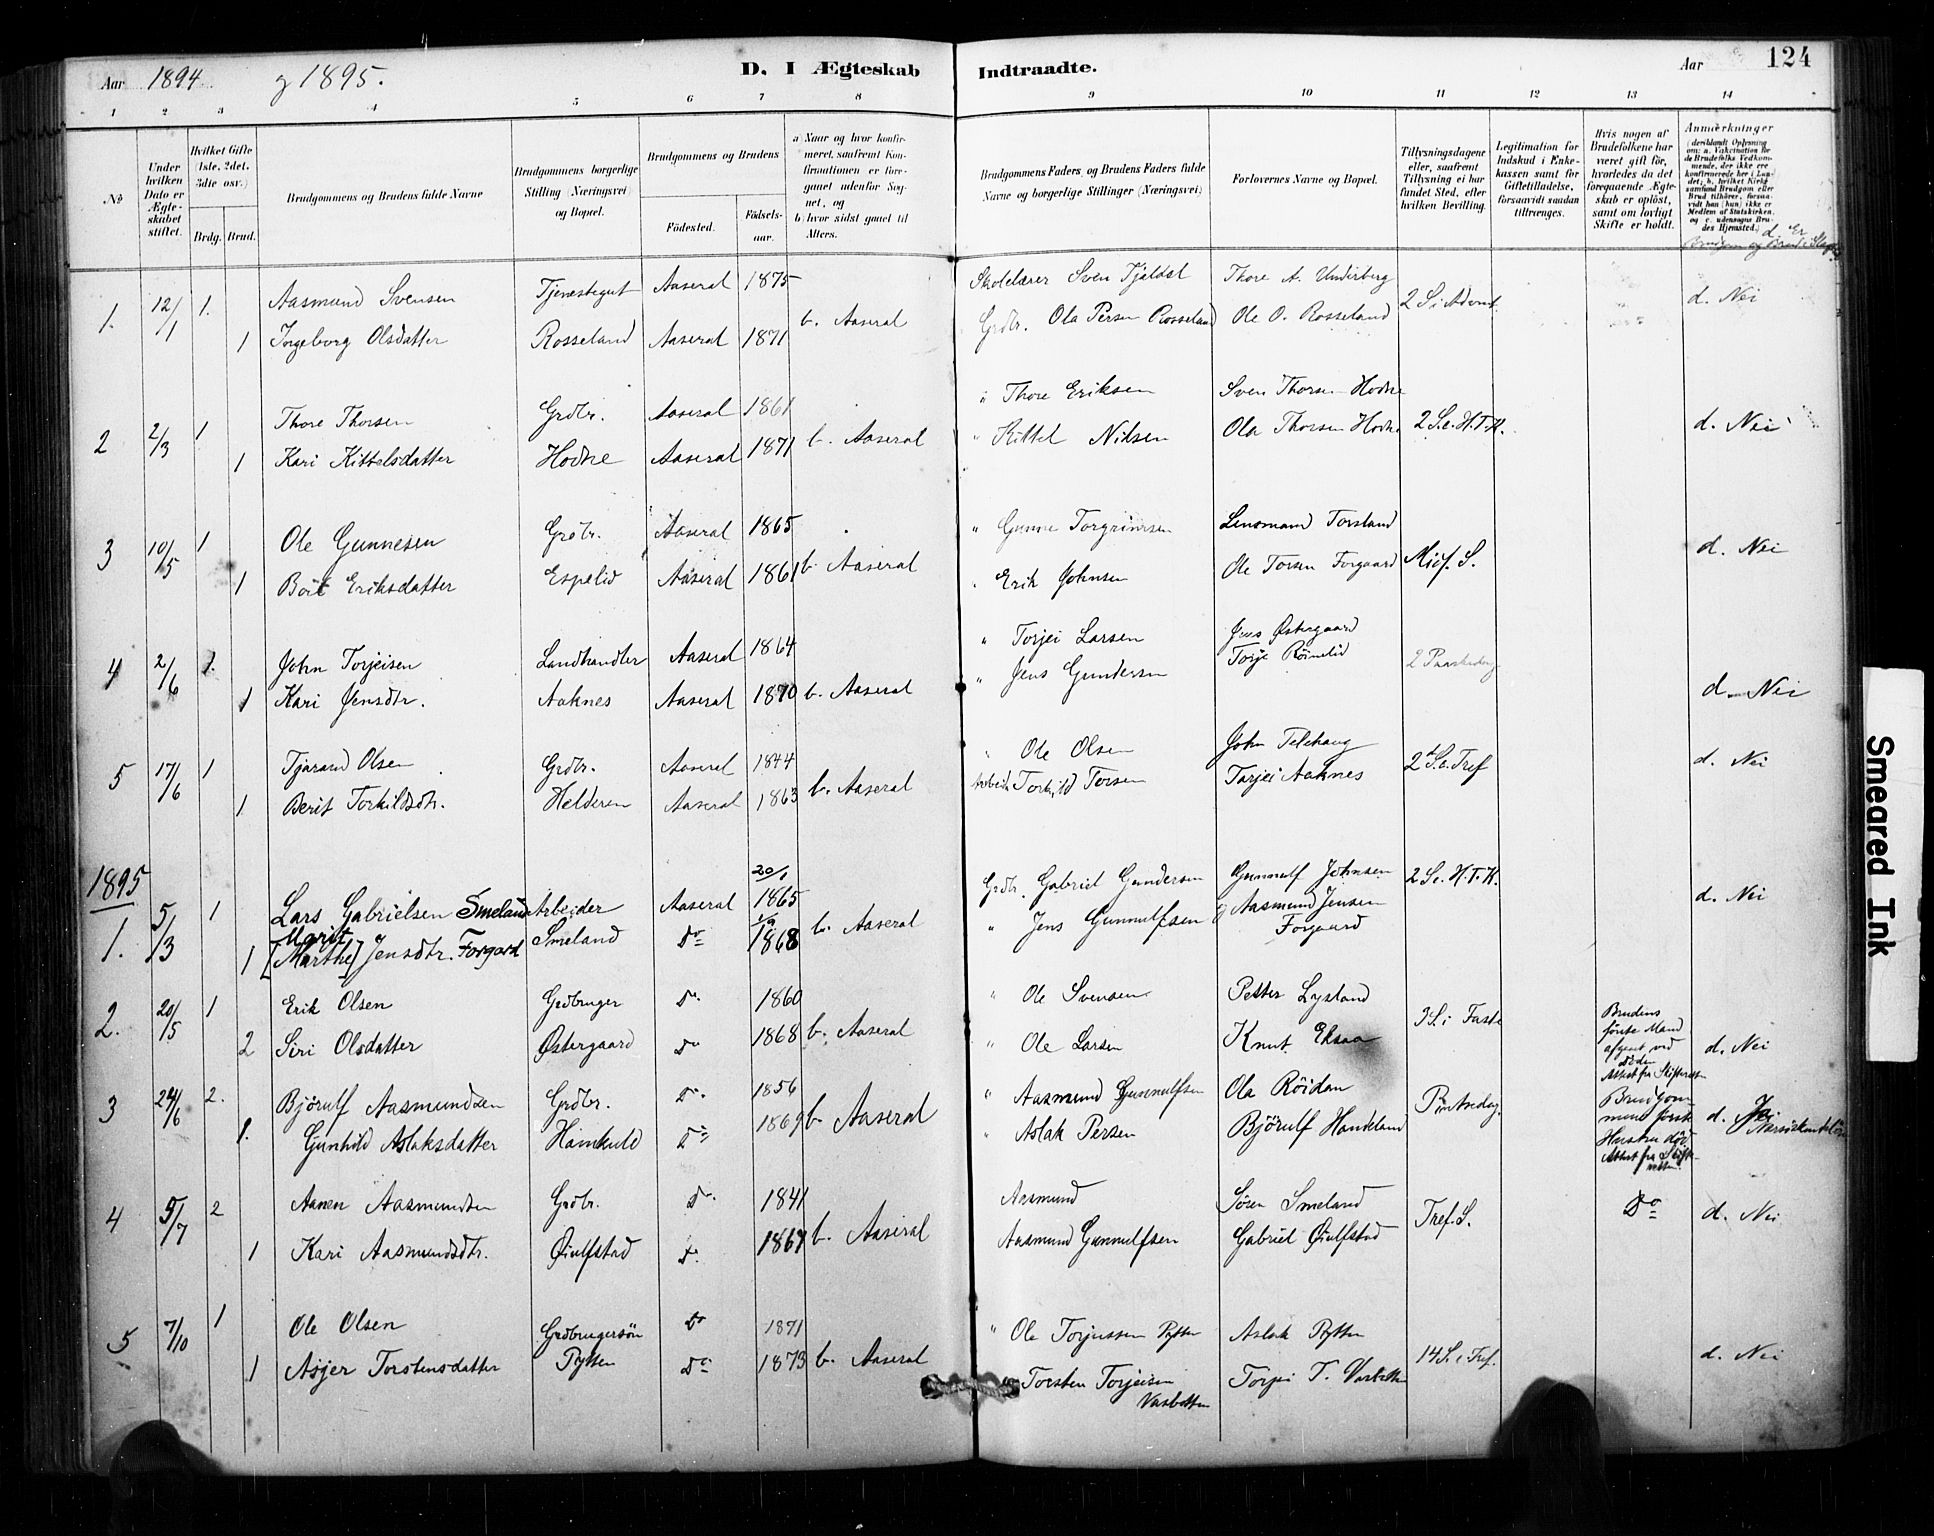 Aar 1894 og 1895. D. I Ægteskab Indtraadte. Aar 124
1 2 3 4 5 6 7 8 9 10 11 12 13 14
No
Under hvilken Dato er Ægteskabet stiftet.
Hvilket Gifte (1ste, 2det, 3die osv.)
Brdg. Brud.
Brudgommens og Brudens fulde Navne
Brudgommens borgerlige Stilling (Næringsvei) og Bopæl.
Brudgommens og Brudens
Födested. Födselsaar.
a) Naar og hvor konfirmeret, saafremt Konfirmationen er foregaaet udenfor Sognet, og
b) hvor sidst gaaet til Alters.
Brudgommens Faders og Brudens Faders fulde Navne og borgerlige Stillinger (Næringsvei)
Forlovernes Navne og Bopæl.
Tillysningsdagene eller, saafremt Tillysning ei har fundet Sted, efter hvilken Bevilling.
Legitimation for Indskud i Enkekassen samt for Giftetilladelse, forsaavidt saadan tiltrænges.
Hvis nogen af Brudefolkene har været gift för, hvorledes da det foregaaende Ægteskab er oplöst, samt om lovligt Skifte er holdt.
Anmærkninger (deriblandt Oplysning om: a. Vakcination for de Brudefolks Vedkommende, der ikke ere konfirmerede her i Landet; b. hvilket Kirkesamfund Brudgom eller Brud tilhörer, forsaavidt han (hun) ikke er Medlem af Statskirken, og c. udensogns Brudes Hjemsted.)
d. Er Brudgom og Brud i Slægt
1. 12/1 1. Aasmund Svensen Tjenestegut Aaseral 1875 Skolelærer Sven Tjaldal Thore A. Underberg
1 Ingeborg Olsdatter Rosseland Aaseral 1871 b. Aaseral Grdbr. Ola Persen Rosseland Ole O. Rosseland 2 S. i Advent d. Nei
2 2/3 1 Thore Thorsen Grdbr. Aaseral 1861 " Thore Eriksen Sven Thorsen Hodne
1 Kari Kittelsdatter Hodne Aaseral 1871 b. Aaseral " Kittel Nilsen Ola Thorsen Hodne 2 S. e. H. T. K. d. Nei
3 10/5 1 Ole Gunnesen Grdbr. Aaseral 1865 " Gunne Torgrimsen Lensmand Torsland
1 Borit Eriksdatter Espelid Aaseral 1861 b. Aaseral " Erik Johnsen Ole Torsen Forgaard Mics. S. d. Nei
4 2/6 1. John Torjeisen Landhandler Aaseral 1864 " Torjei Larsen Jens Østergaard
Torje Röinelid 2 Paaskedag
1 Kari Jensdtr. Aaknes Aaseral 1870 b. Aaseral " Jens Gundersen d. Nei
5 17/6 1 Tjarand Olsen Grdbr. Aaseral 1844 " Ole Olsen John Telehaug
1 Berit Torkildsdtr. Helderen Aaseral 1863 b. Aaseral Arbeider Torkild Torsen Torjei Aaknes 2 S. e. Tref d. Nei
1895
1. 5/3 1 Lars Gabrielsen Smeland Arbeider Aaseral 20/1 1865 Grdbr. Gabriel Gundersen Gunnulf Johnsen 2 S. e. H. T. K.
Marit
1 [Marthe] Jensdtr. Forgard Smeland Do 1/9 1868 b. Aaseral " Jens Gunnulfsen og Aasmund Jensen Forgaard d. Nei
2. 20/5 1 Erik Olsen Grdbruger Do. 1860 " Ole Svensen Petter Lysland
2 Siri Olsdatter Østergaard Do 1868 b. Aaseral " Ole Larsen Knut Eksaa 3 S. i Faste Brudens förste Mand afgaaet ved Döden Attest fra Skifteretten d. Nei
3 24/6 2. Bjørulf Aasmundsen Grdbr. Do. 1856 " Aasmund Gunnulfsen Ola Röidan
1. Gunhild Aslaksdatter Hamkuld Do 1869 b. Aaseral " Aslak Persen Björulf Handeland Pintsedag Brudgommens förste Hustru död Attest fra Skifteretten. d. Ja
4 5/7 2 Aanen Aasmundsen Grdbr. Do. 1841 Aasmund Sören Smeland
1 Kari Aasmundsdtr. Øiulfstad Do. 1867 b. Aaseral Aasmund Gunnulfsen Gabriel Øiulfstad Tref. S. Do d. Nei
5 7/10 1 Ole Olsen Grdbrugersön Do 1871 " Ole Torjussen Pytten Aslak Pytten
1 Asjer Torstensdatter Pytten Do 1873 b. Aaseral " Torsten Torjeisen Vasbotten Torjei T. Vasbotten 14 S. e. Tref. d. Nei
Smeared Ink